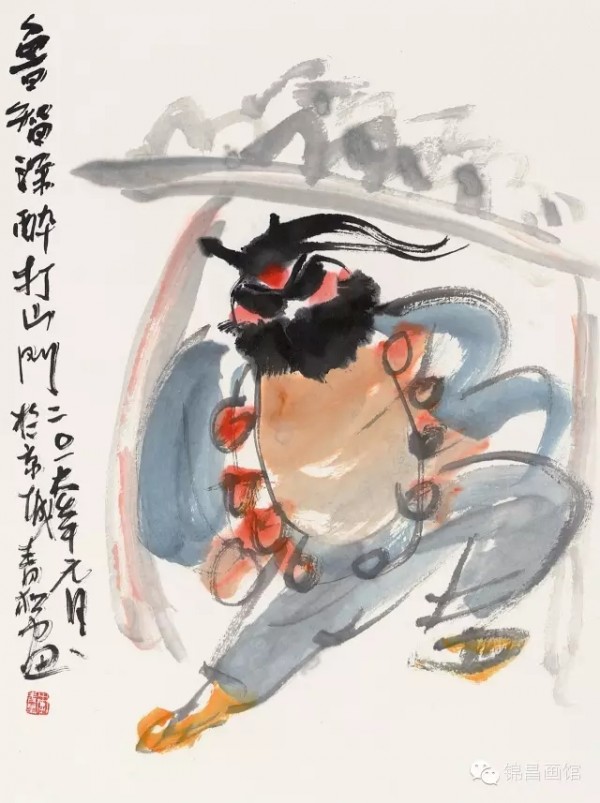 鲁智深醉打山门
二〇一六年元月
於京城青松画
锦昌画馆